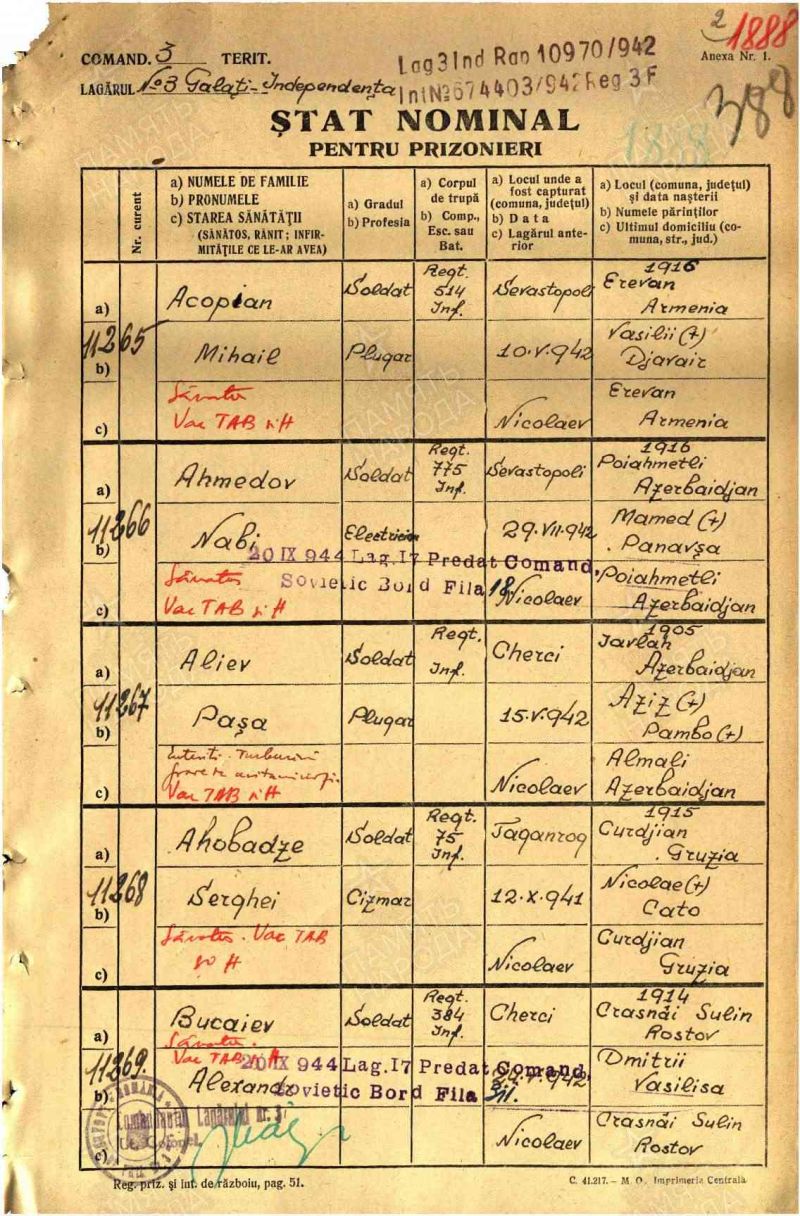 2
1888
COMAND. 3 TERIT.
Anexa Nr. 1.
LAGĂRUL № 3 Galați-Independența
Lag3Ind Rap 10970/942
Int№674403/942Reg 3F
388
1888
ȘTAT NOMINAL
PENTRU PRIZONIERI
Nr. curent
a) NUMELE DE FAMILIE
b) PRONUMELE
c) STAREA SĂNĂTĂȚII
(SĂNĂTOS, RĂNIT; INFIR-
MITĂȚILE CE LE-AR AVEA)
a) Gradul
b) Profesia
a) Corpul
de trupă
b) Comp.,
Esc. sau
Bat.
a) Locul unde a
fost capturat
(comuna, județul)
b) Data
c) Lagărul ante-
rior
a) Locul (comuna, județul)
și data nașterii
b) Numele părinților
c) Ultimul domiciliu (co-
muna, str., jud.)
11265
a) Acopian Soldat Regt. 514 Inf. Sevastopoli 1916 Erevan Armenia
b) Mihail Plugar 10.V.942 Vasilii (+) Djavair
c) Sănătos Vac TAB și H Nicolaev Erevan Armenia
11266
a) Ahmedov Soldat Regt. 775 Inf. Sevastopoli 1916 Poiahmetli Azerbaidjan
b) Nabi Electrician 29.VII.942 Mamed (+) Panavșa
20 IX 944 Lag.17 Predat Comand.
Sovietic Bord Fila 18
c) Sănătos Vac TAB și H Nicolaev Poiahmetli Azerbaidjan
11267
a) Aliev Soldat Regt. Inf. Cherci 1905 Javlah Azerbaidjan
b) Pașa Plugar 15.V.942 Aziz (+) Pambo (+)
c) Vac TAB și H Nicolaev Almali Azerbaidjan
11268
a) Ahobadze Soldat Regt. 75 Inf. Taganrog 1915 Curdjian Gruzia
b) Serghei Cizmar 12.X.941 Nicolae (+) Cato
c) Sănătos. Vac TAB și H Nicolaev Curdjian Gruzia
11269.
a) Bucaiev Soldat Regt. 384 Inf. Cherci 1914 Crasnâi Sulin Rostov
Sănătos. Vac TAB și H
20 IX 944 Lag.17 Predat Comand.
Sovietic Bord Fila
b) Alexandr V.942 Dmitrii Vasilisa
c) Nicolaev Crasnâi Sulin Rostov
Comandantul Lagărului nr. 3
Lt. Colonel
Reg. priz. și int. de războiu, pag. 51.
C. 41.217. - M. O., Imprimeria Centrală
ПАМЯТЬ НАРОДА